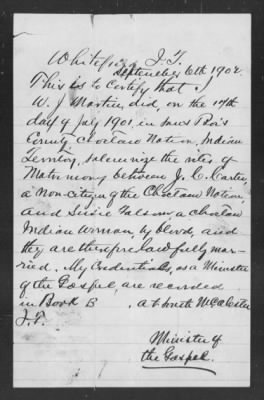 Whitefield I.T.
September 6th 1902.
This is to Certify that I
W. J. Martin, did, on the 14th
day of July 1901, in Sans Bois
County Choctaw Nation, Indian
Territory, solemnize the rites of
Matrimony between J. C. Carter,
a non-citizen of the Choctaw Nation,
and Susie Folsom a Choctaw
Indian woman, by blood, and
they are therefore lawfully mar-
ried. My Credentials, as a Minister
of the Gospel, are recorded
in Book B at South McAlester
I.T.
Minister of
the Gospel.